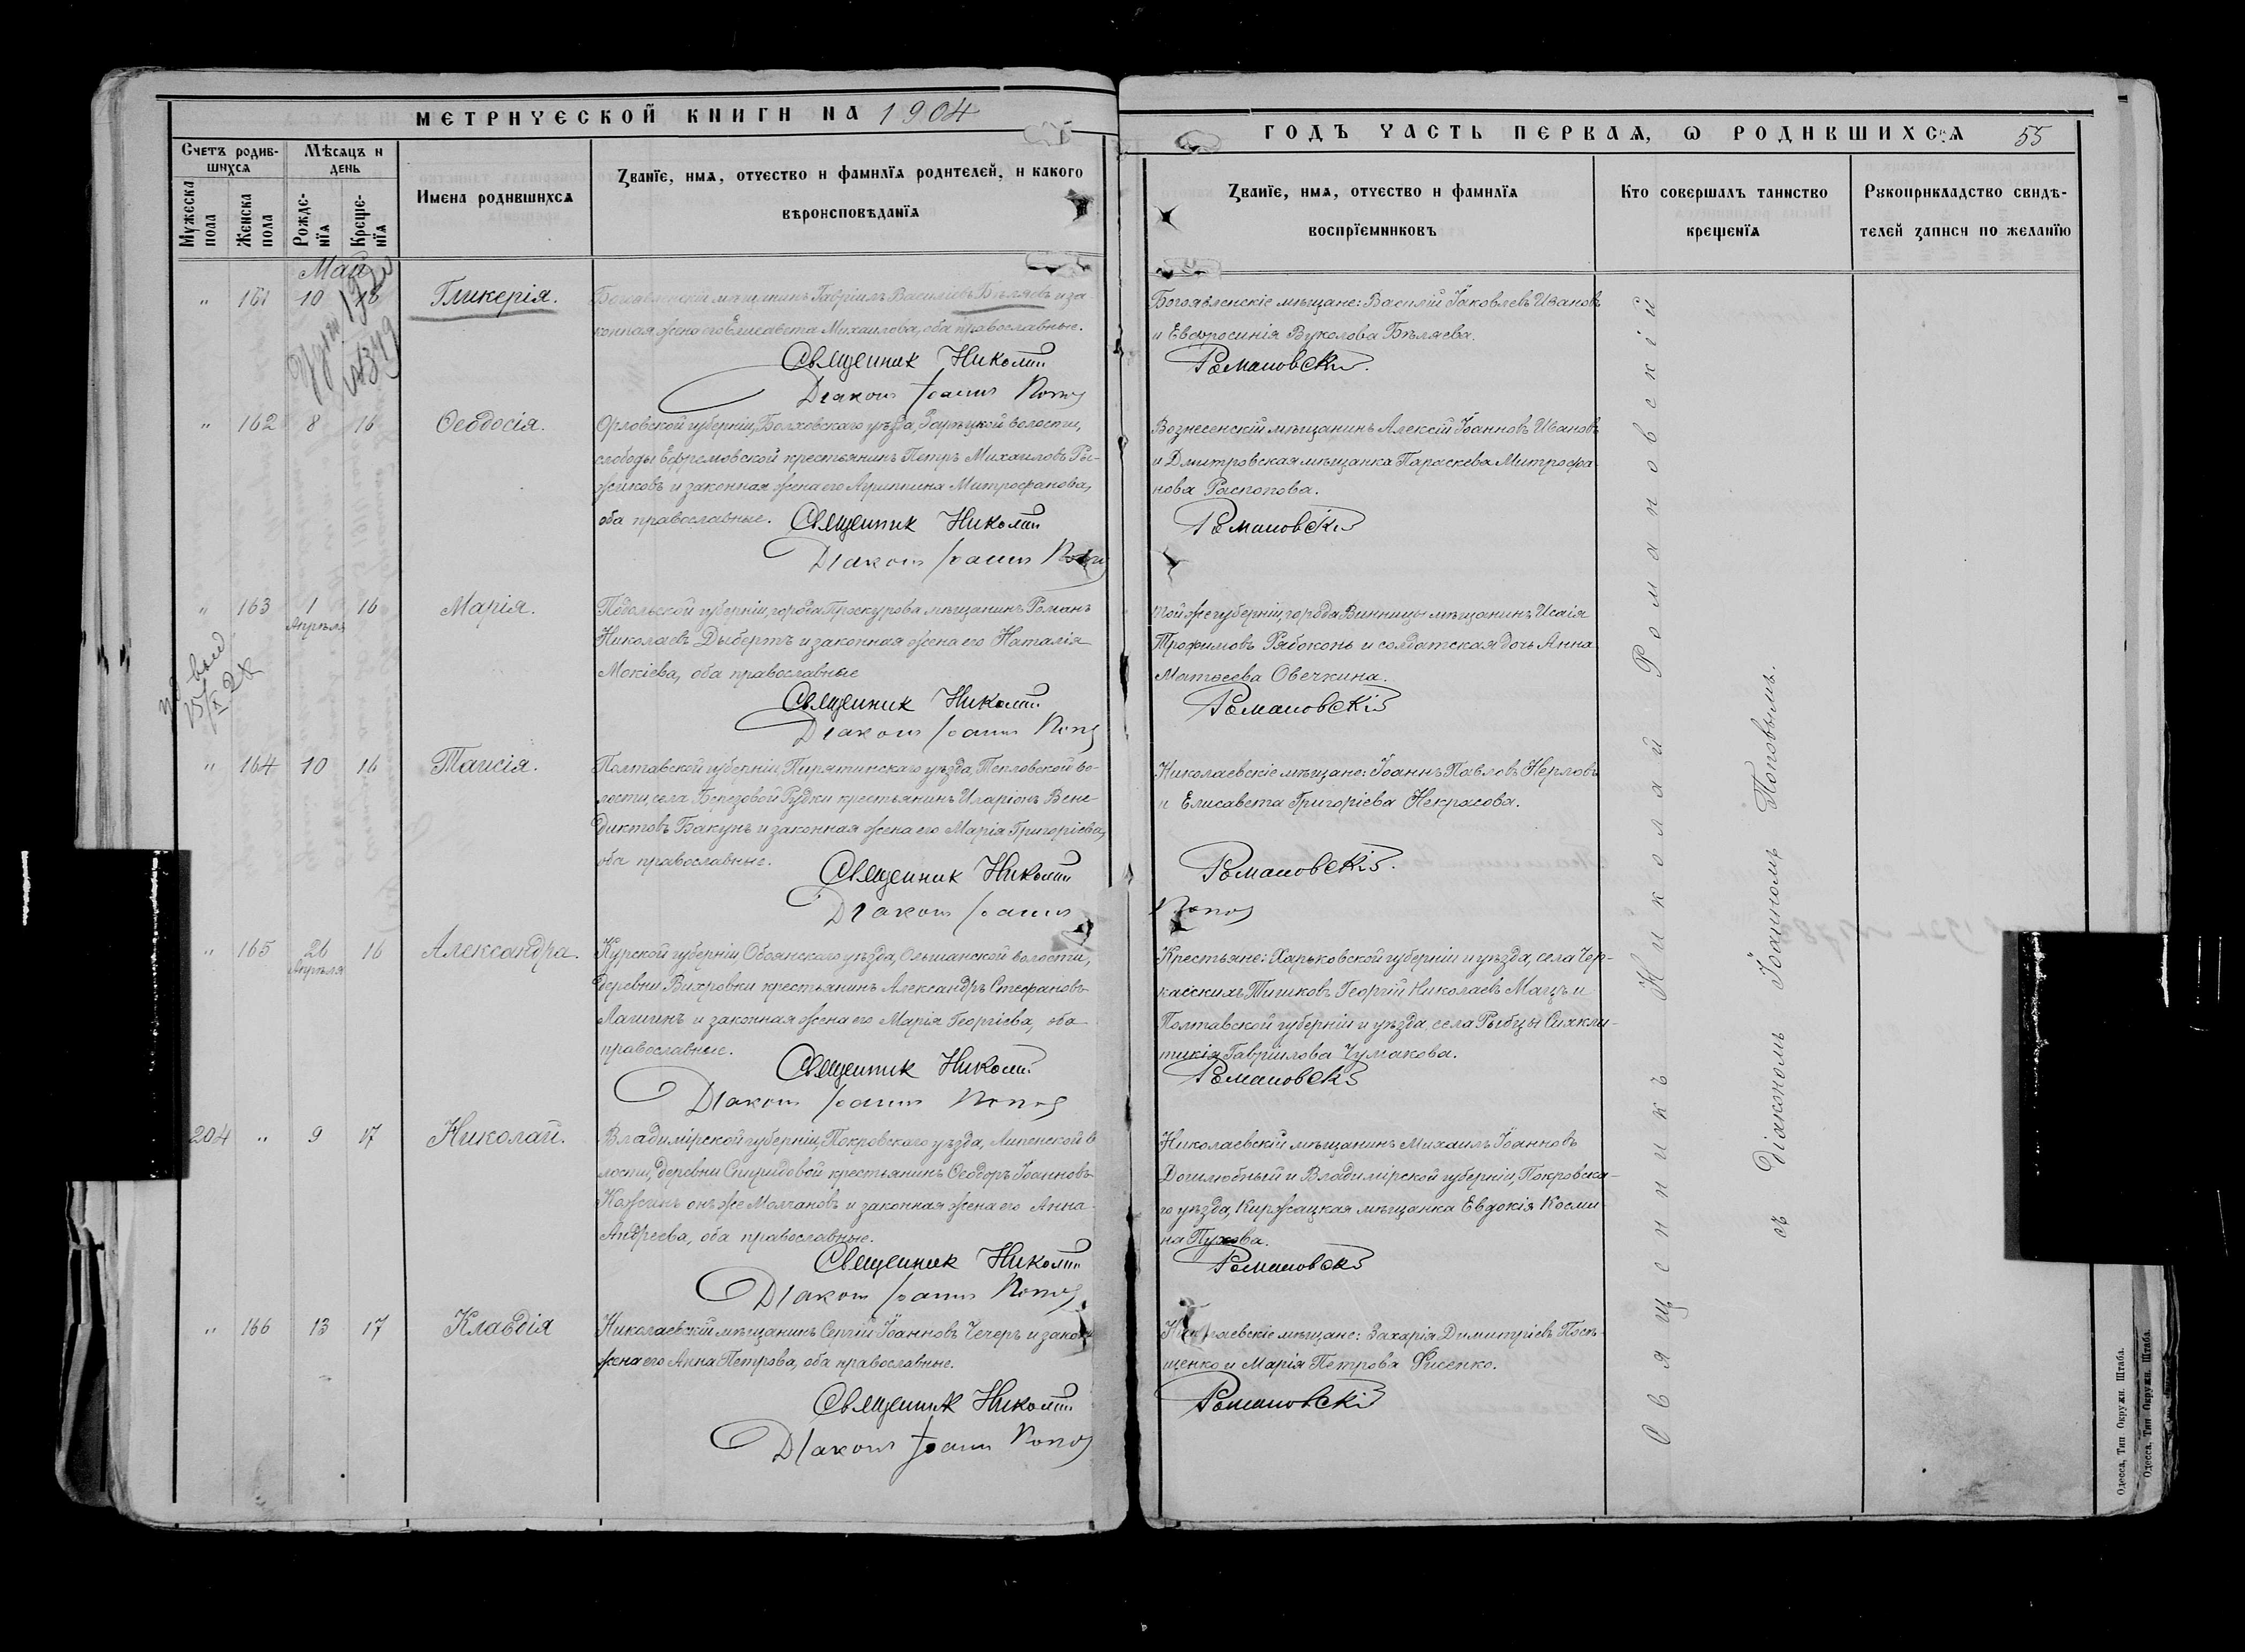 МЕТРИЧЕСКОЙ КНИГИ НА 1904
ГОДЪ ЧАСТЬ ПЕРВАЯ, Ѡ РОДИВШИХСЯ 55
Счетъ родив-
шихся
Мѣсяцъ и
день
Мужеска
пола
Женска
пола
Рожде-
нїя
Креще-
нїя
Имена родившихся
Званїе, имя, отчество и фамилїя родителей, и какого
вѣроисповѣданїя
Званїе, имя, отчество и фамилїя
воспрїемниковъ
Кто совершалъ таинство
крещенїя
Рукоприкладство свидѣ-
телей записи по желанїю
Май
„ 161 10 16 Гликерія.
Богоявленскій мѣщанинъ Гавріилъ Василіевъ Бѣляевъ и за-
конная жена его Елисавета Михаилова, оба православные.
Священник Николай
Діакон Іоанн Попов
Богоявленскіе мѣщане: Василій Іаковлевъ Ивановъ
и Евфросинія Вуколова Бѣляева.
Романовскій.
„ 162 8 16 Ѳеодосія.
Орловской губерніи, Болховскаго уѣзда, волости,
слободы Ефремовской крестьянинъ Петръ Михаиловъ Ры-
жиковъ и законная жена его Агриппина Митрофанова,
оба православные. Священник Николай
Діакон Іоанн Попов
Вознесенскій мѣщанинъ Алексій Іоанновъ Ивановъ
и Дмитровская мѣщанка Параскева Митрофа-
нова Распопова.
Романовскій
„ 163 1 16 Марія.
Апрѣля
Подольской губерніи, города Проскурова мѣщанинъ Романъ
Николаевъ Дыбертъ и законная жена его Наталія
Мокіева, оба православные
Священник Николай
Діакон Іоанн Попов
той же губерніи, города Винницы мѣщанинъ Исаія
Трофимовъ Рябоконь и солдатская дочь Анна
Матѳеева Овечкина.
Романовскій
„ 164 10 16 Таисія.
Полтавской губерніи, Пирятинскаго уѣзда, Тепловской во-
лости, села Березовой Рудки крестьянинъ Иларіонъ Вене-
диктовъ Бакунъ и законная жена его Марія Григоріева,
оба православные.
Священник Николай
Діакон Іоанн
Николаевскіе мѣщане: Іоаннъ Павловъ Нерловъ
и Елисавета Григоріева Некрасова.
Романовскій.
Попов
„ 165 26 16 Александра.
Апрѣля
Курской губерніи, Обоянскаго уѣзда, Ольшанской волости,
деревни Вихровки крестьянинъ Александръ Стефановъ
Лашинъ и законная жена его Марія Георгіева, оба
православные.
Священник Николай
Діакон Іоанн Попов
Крестьяне: Харьковской губерніи и уѣзда, села Чер-
касскихъ Тишковъ Георгій Николаевъ Мацъ и
Полтавской губерніи и уѣзда, села Рыбцы Синкли-
тикія Гавріилова Чумакова.
Романовскій
204 „ 9 17 Николай.
Владимірской губерніи, Покровскаго уѣзда, Липенской в
лости, деревни Спиридовой крестьянинъ Ѳеодоръ Іоанновъ
Кожанъ онъ же Молчановъ и законная жена его Анна
Андреева, оба православные.
Священник Николай
Діакон Іоанн Попов
Николаевскій мѣщанинъ Михаилъ Іоанновъ
и Владимірской губерніи, Покровска-
го уѣзда, Киржацкая мѣщанка Евдокія Косми-
на Пухова.
Романовскій
„ 166 13 17 Клавдія
Николаевскій мѣщанинъ Сергій Іоанновъ Чечеръ и закон
жена его Анна Петрова, оба православные.
Священник Николай
Діакон Іоанн Попов
Николаевскіе мѣщане: Захарія Димитріевъ Посѣ-
щенко и Марія Петрова Фисенко.
Романовскій
Священникъ Николай Романовскій
съ Діакономъ Іоанномъ Поповымъ.
Одесса, Тип. Окружн. Штаба.
Одесса, Тип. Окружн. Штаба.